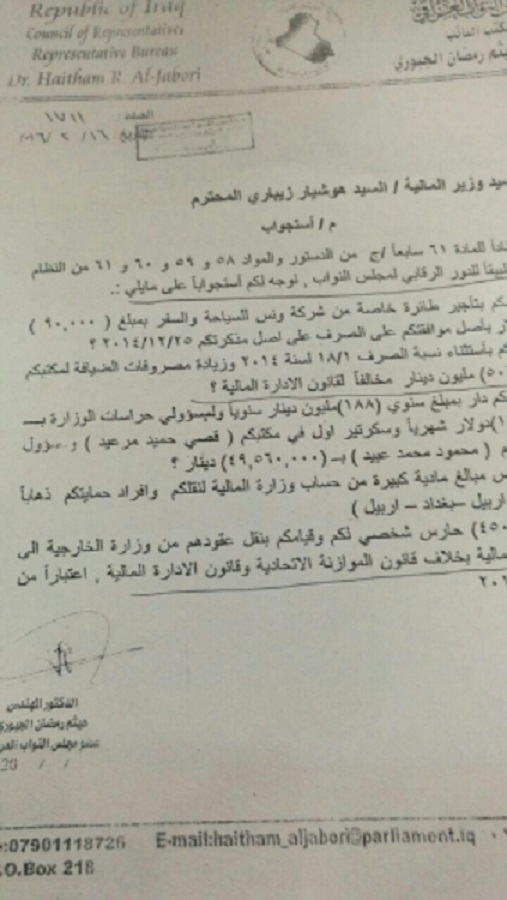 Republic of Iraq
Council of Representatives
Representative Bureau
Dr. Haitham R. Al-Jabori
مكتب النائب
هيثم رمضان الجبوري
العدد: ١٧١١
٢٠١٦/ ٢ /١٦
سيد وزير المالية / السيد هوشيار زيباري المحترم
م / أستجواب
للمادة ٦١ سابعاً /ج من الدستور والمواد ٥٨ و ٥٩ و ٦٠ و ٦١ من النظام
للدور الرقابي لمجلس النواب , نوجه لكم أستجواباً على مايلي :.
بتأجير طائرة خاصة من شركة ونس للسياحة والسفر بمبلغ ( ٩٠,٠٠٠ )
بأصل موافقتكم على الصرف على اصل مذكرتكم ٢٠١٤/١٢/٢٥ ؟
بأستثناء نسبة الصرف ١٨/١ لسنة ٢٠١٤ وزيادة مصروفات الضيافة لمكتبكم
مليون دينار مخالفاً لقانون الادارة المالية ؟
دار بمبلغ سنوي (١٨٨)مليون دينار سنوياً ولمسؤولي حراسات الوزارة بـــ
)دولار شهرياً وسكرتير اول في مكتبكم ( قصي حميد مرعيد ) ومسؤول
( محمود محمد عبيد ) بـــ (٤٩,٥٦٠,٠٠٠) دينار ؟
مبالغ مادية كبيرة من حساب وزارة المالية لنقلكم وافراد حمايتكم ذهاباً
اربيل –بغداد – اربيل )
حارس شخصي لكم وقيامكم بنقل عقودهم من وزارة الخارجية الى
بخلاف قانون الموازنة الاتحادية وقانون الادارة المالية , اعتباراً من
الدكتور المهندس
هيثم رمضان الجبوري
عضو مجلس النواب
20 / /
:07901118726 E-mail:haitham_aljabori@parliament.iq
P.O.Box 218